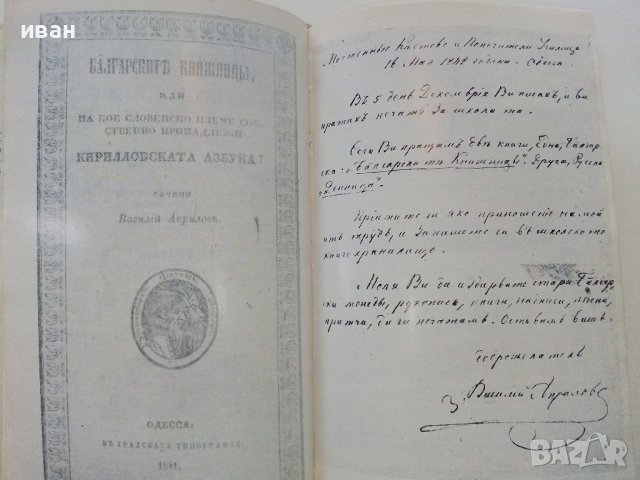 иван
БѪЛГАРСКИТѢ КНИЖИЦЫ,
или
НА КОЕ СЛОВЕНСКО ПЛЕМЕ СОБ-
СТВЕННО ПРИНАДЛЕЖИ
КИРИЛЛОВСКАТА АЗБУКА?
сочини
Василій Априловъ.
ОДЕССА.
ВЪ ГРАДСКАТА ТИПОГРАФІЯ.
1841.
Почтенные Ктетове и Попечители Училища
16 Мая 1842 година. Одесса.
Въ 5 день Декемврія Ви писахъ, и ви
пратихъ печатъ за школата.
Сега Ви пращамъ двѣ книги, една, Бѫлгар-
ска: "Бѫлгарскитѣ Книжицы". Друга, Русска
"Денница".
Пріятите ги яко приношеніе на мой
трудъ, и запишете ги въ школското
книгохранилище.
Моля Ви да издирвате стари Бѫлгар-
ски монеды, рукописи, книги, надписи, пѣсни,
притчи, да ги печатамъ. Оставамъ Вашъ.
доброжелатель
Василій Априловъ
BAZAR
bg